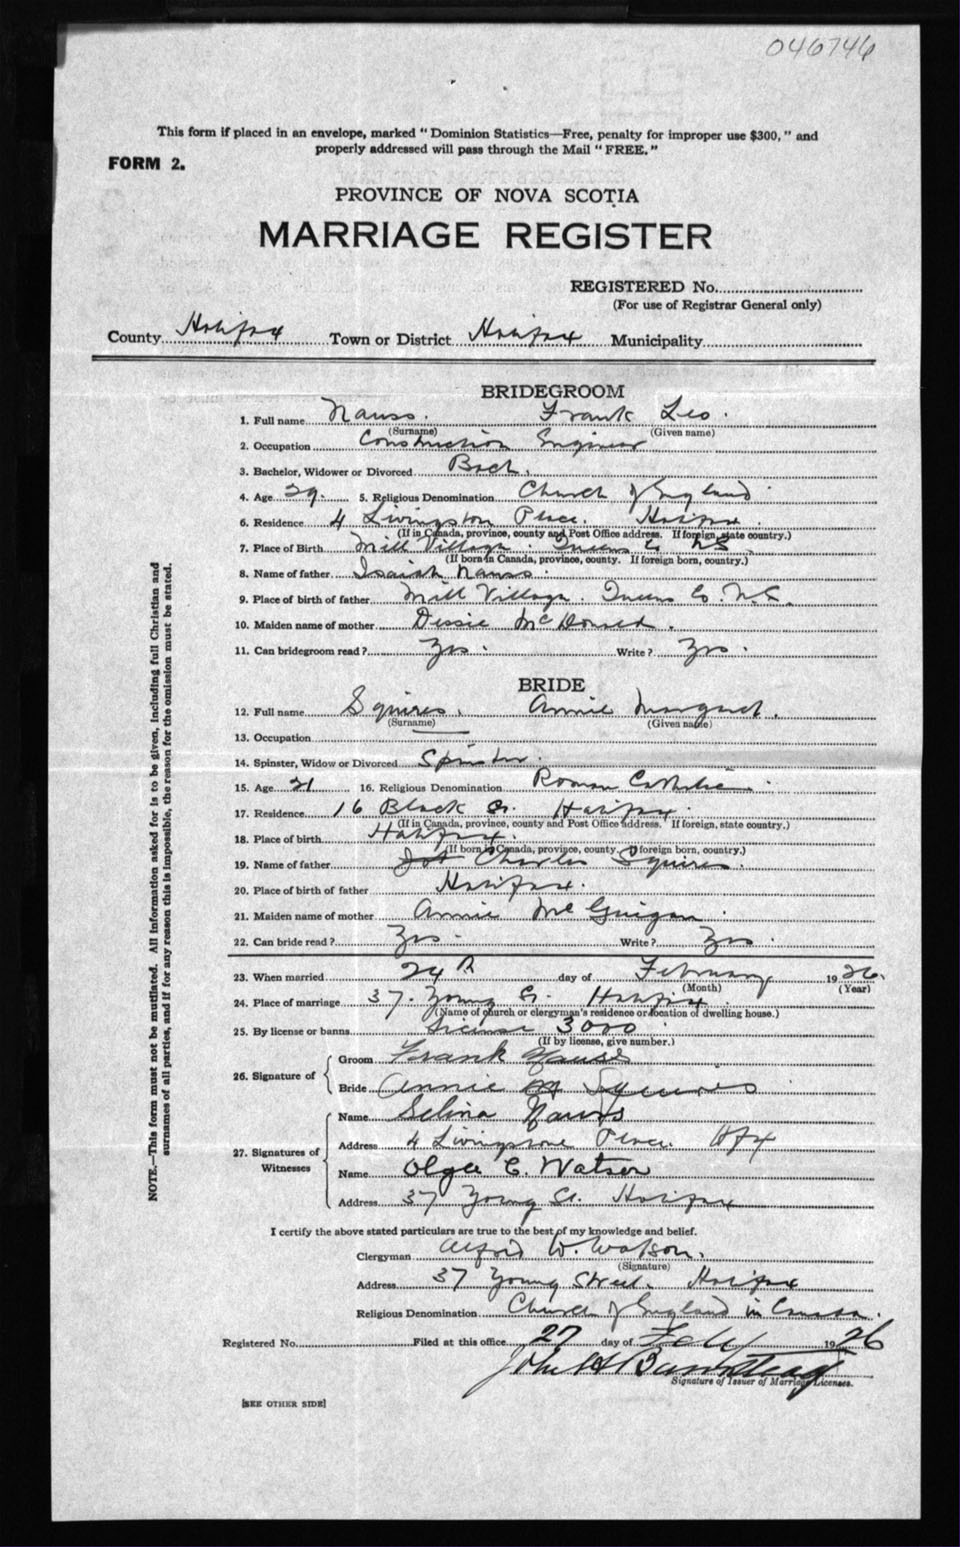 046746
This form if placed in an envelope, marked "Dominion Statistics—Free, penalty for improper use $300," and
properly addressed will pass through the Mail "FREE."
FORM 2.
PROVINCE OF NOVA SCOTIA
MARRIAGE REGISTER
REGISTERED No.
(For use of Registrar General only)
County Halifax Town or District Halifax Municipality
BRIDEGROOM
1. Full name Nauss. Frank Leo.
(Surname) (Given name)
2. Occupation Construction Engineer
3. Bachelor, Widower or Divorced Bach.
4. Age 29. 5. Religious Denomination Church of England
6. Residence 4 Livingston Place. Halifax.
(If in Canada, province, county and Post Office address. If foreign, state country.)
7. Place of Birth Mill Village. Queens Co NS.
(If born in Canada, province, county. If foreign born, country.)
8. Name of father Isaiah Nauss.
9. Place of birth of father Mill Village. Queens Co. N.S.
10. Maiden name of mother Dessie McDonald.
11. Can bridegroom read? Yes. Write? Yes.
BRIDE
12. Full name Squires. Annie Margaret.
(Surname) (Given name)
13. Occupation
14. Spinster, Widow or Divorced Spinster.
15. Age 21 16. Religious Denomination Roman Catholic
17. Residence 16 Black St. Halifax.
(If in Canada, province, county and Post Office address. If foreign, state country.)
18. Place of birth Halifax.
(If born in Canada, province, county. If foreign born, country.)
19. Name of father Charles Squires.
20. Place of birth of father Halifax.
21. Maiden name of mother Annie McGuigan.
22. Can bride read? Yes. Write? Yes.
23. When married 24th day of February 1926.
(Month) (Year)
24. Place of marriage 37. Young St. Halifax.
(Name of church or clergyman's residence or location of dwelling house.)
25. By license or banns License 3000
(If by license, give number.)
26. Signature of
Groom Frank Nauss
Bride Annie M Squires
27. Signatures of Witnesses
Name Selina Nauss
Address 4 Livingstone Place. Hfx
Name Olga C. Watson
Address 37 Young St. Halifax
I certify the above stated particulars are true to the best of my knowledge and belief.
Clergyman Alfred W. Watson.
(Signature)
Address 37 Young Street. Halifax
Religious Denomination Church of England in Canada.
Registered No. Filed at this office 27 day of Feby 1926
John H Barnstead
Signature of Issuer of Marriage Licenses.
[SEE OTHER SIDE]
NOTE.—This form must not be mutilated. All information asked for is to be given, including full Christian and
surnames of all parties, and if for any reason this is impossible, the reason for the omission must be stated.